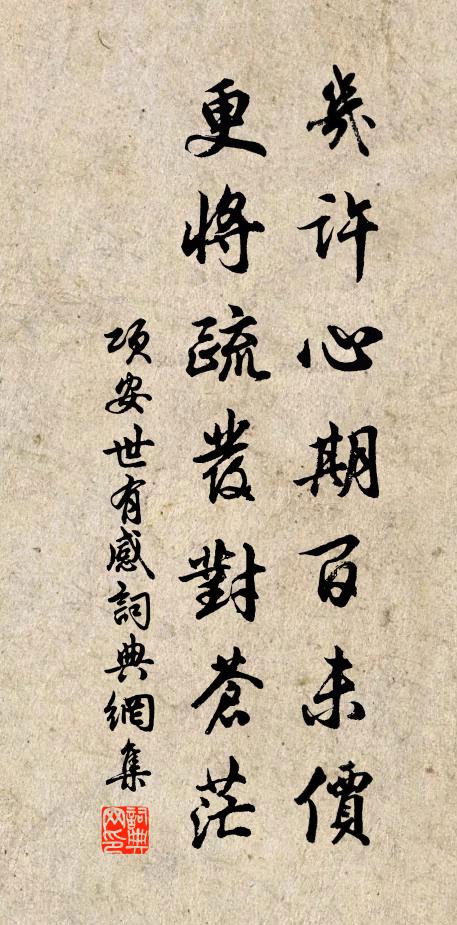 幾許心期百未價
更將疏發對蒼茫
項安世有感詞典網集
詞典網印